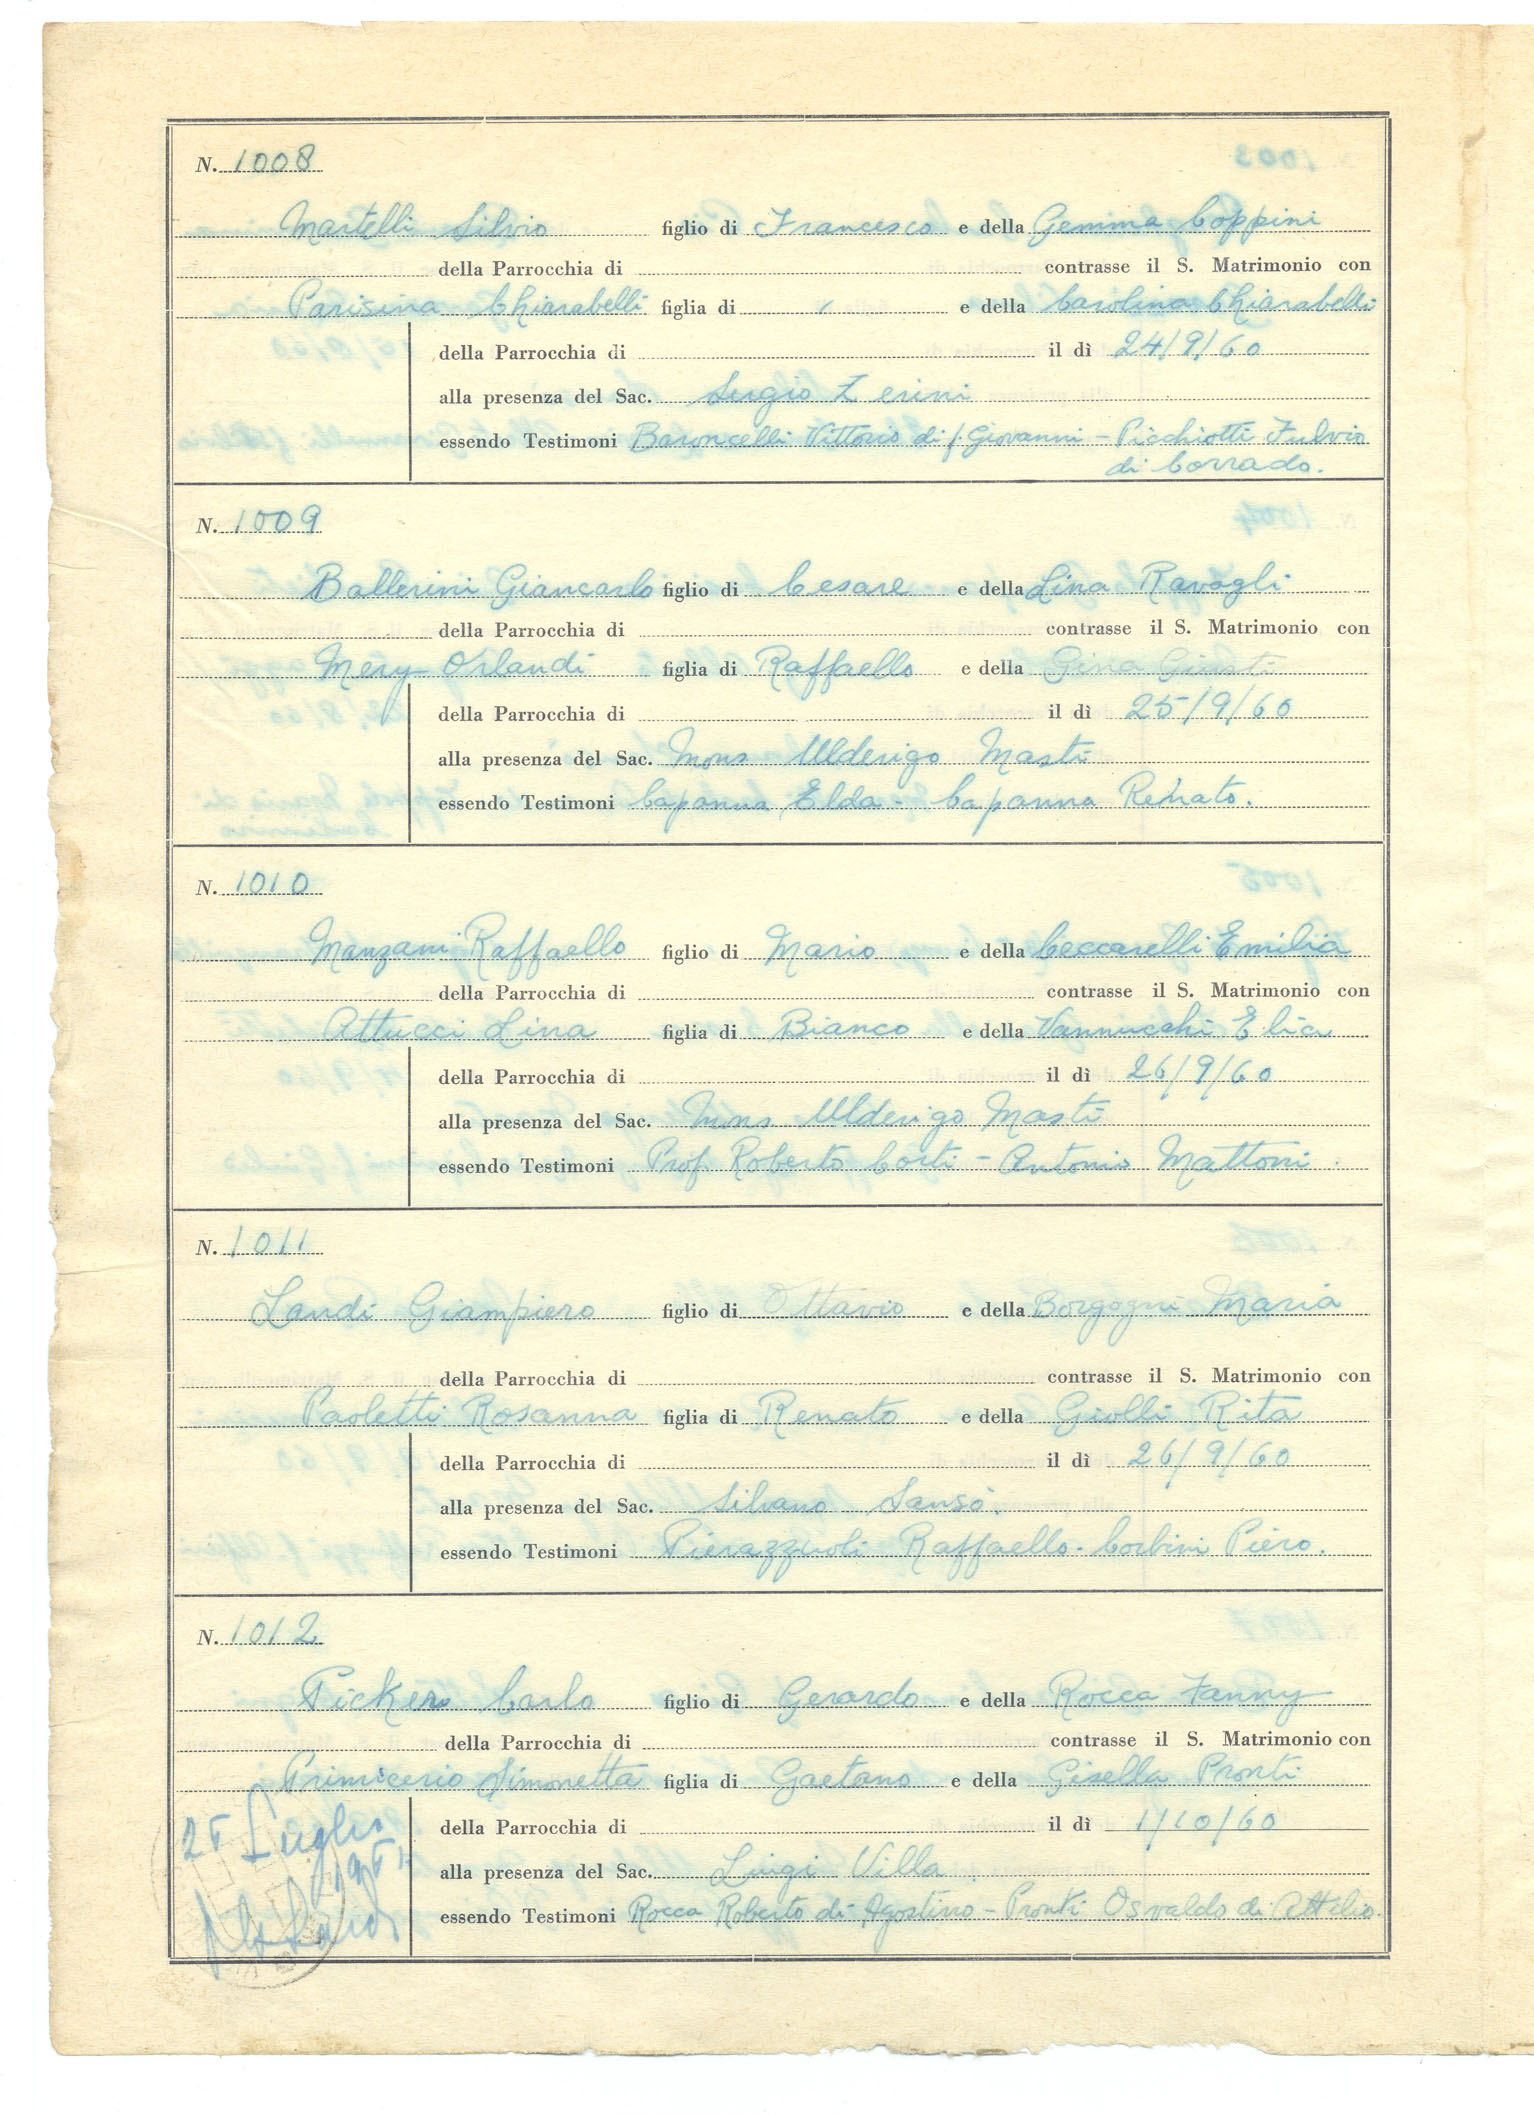 N. 1008
Martelli Silvio figlio di Francesco e della Gemma Coppini
della Parrocchia di contrasse il S. Matrimonio con
Parisina Chiarabelli figlia di / e della Carolina Chiarabelli
della Parrocchia di il dì 24/9/60
alla presenza del Sac. Sergio Zerini
essendo Testimoni Baroncelli Vittorio di f. Giovanni - Picchiotti Fulvio
di Corrado.
N. 1009
Ballerini Giancarlo figlio di Cesare e della Lina Ravagli
della Parrocchia di contrasse il S. Matrimonio con
Mery Orlandi figlia di Raffaello e della Gina Giusti
della Parrocchia di il dì 25/9/60
alla presenza del Sac. Mons Ulderigo Masti
essendo Testimoni Capanna Elda - Capanna Renato.
N. 1010
Manzani Raffaello figlio di Mario e della Ceccarelli Emilia
della Parrocchia di contrasse il S. Matrimonio con
Attucci Lina figlia di Bianco e della Vannucchi Elia
della Parrocchia di il dì 26/9/60
alla presenza del Sac. Mons Ulderigo Masti
essendo Testimoni Prof. Roberto Corti - Antonio Mattoni.
N. 1011
Landi Giampiero figlio di Ottavio e della Borgogni Maria
della Parrocchia di contrasse il S. Matrimonio con
Paoletti Rosanna figlia di Renato e della Giolli Rita
della Parrocchia di il dì 26/9/60
alla presenza del Sac. Silvano Sansò.
essendo Testimoni Pierazzuoli Raffaello - Corbini Piero.
N. 1012
Pickers Carlo figlio di Gerardo e della Rocca Fanny
della Parrocchia di contrasse il S. Matrimonio con
Primicerio Simonetta figlia di Gaetano e della Gisella Pronti
della Parrocchia di il dì 1/10/60
alla presenza del Sac. Luigi Villa
essendo Testimoni Rocca Roberto di Agostino - Pronti Osvaldo di Attilio.
Luglio